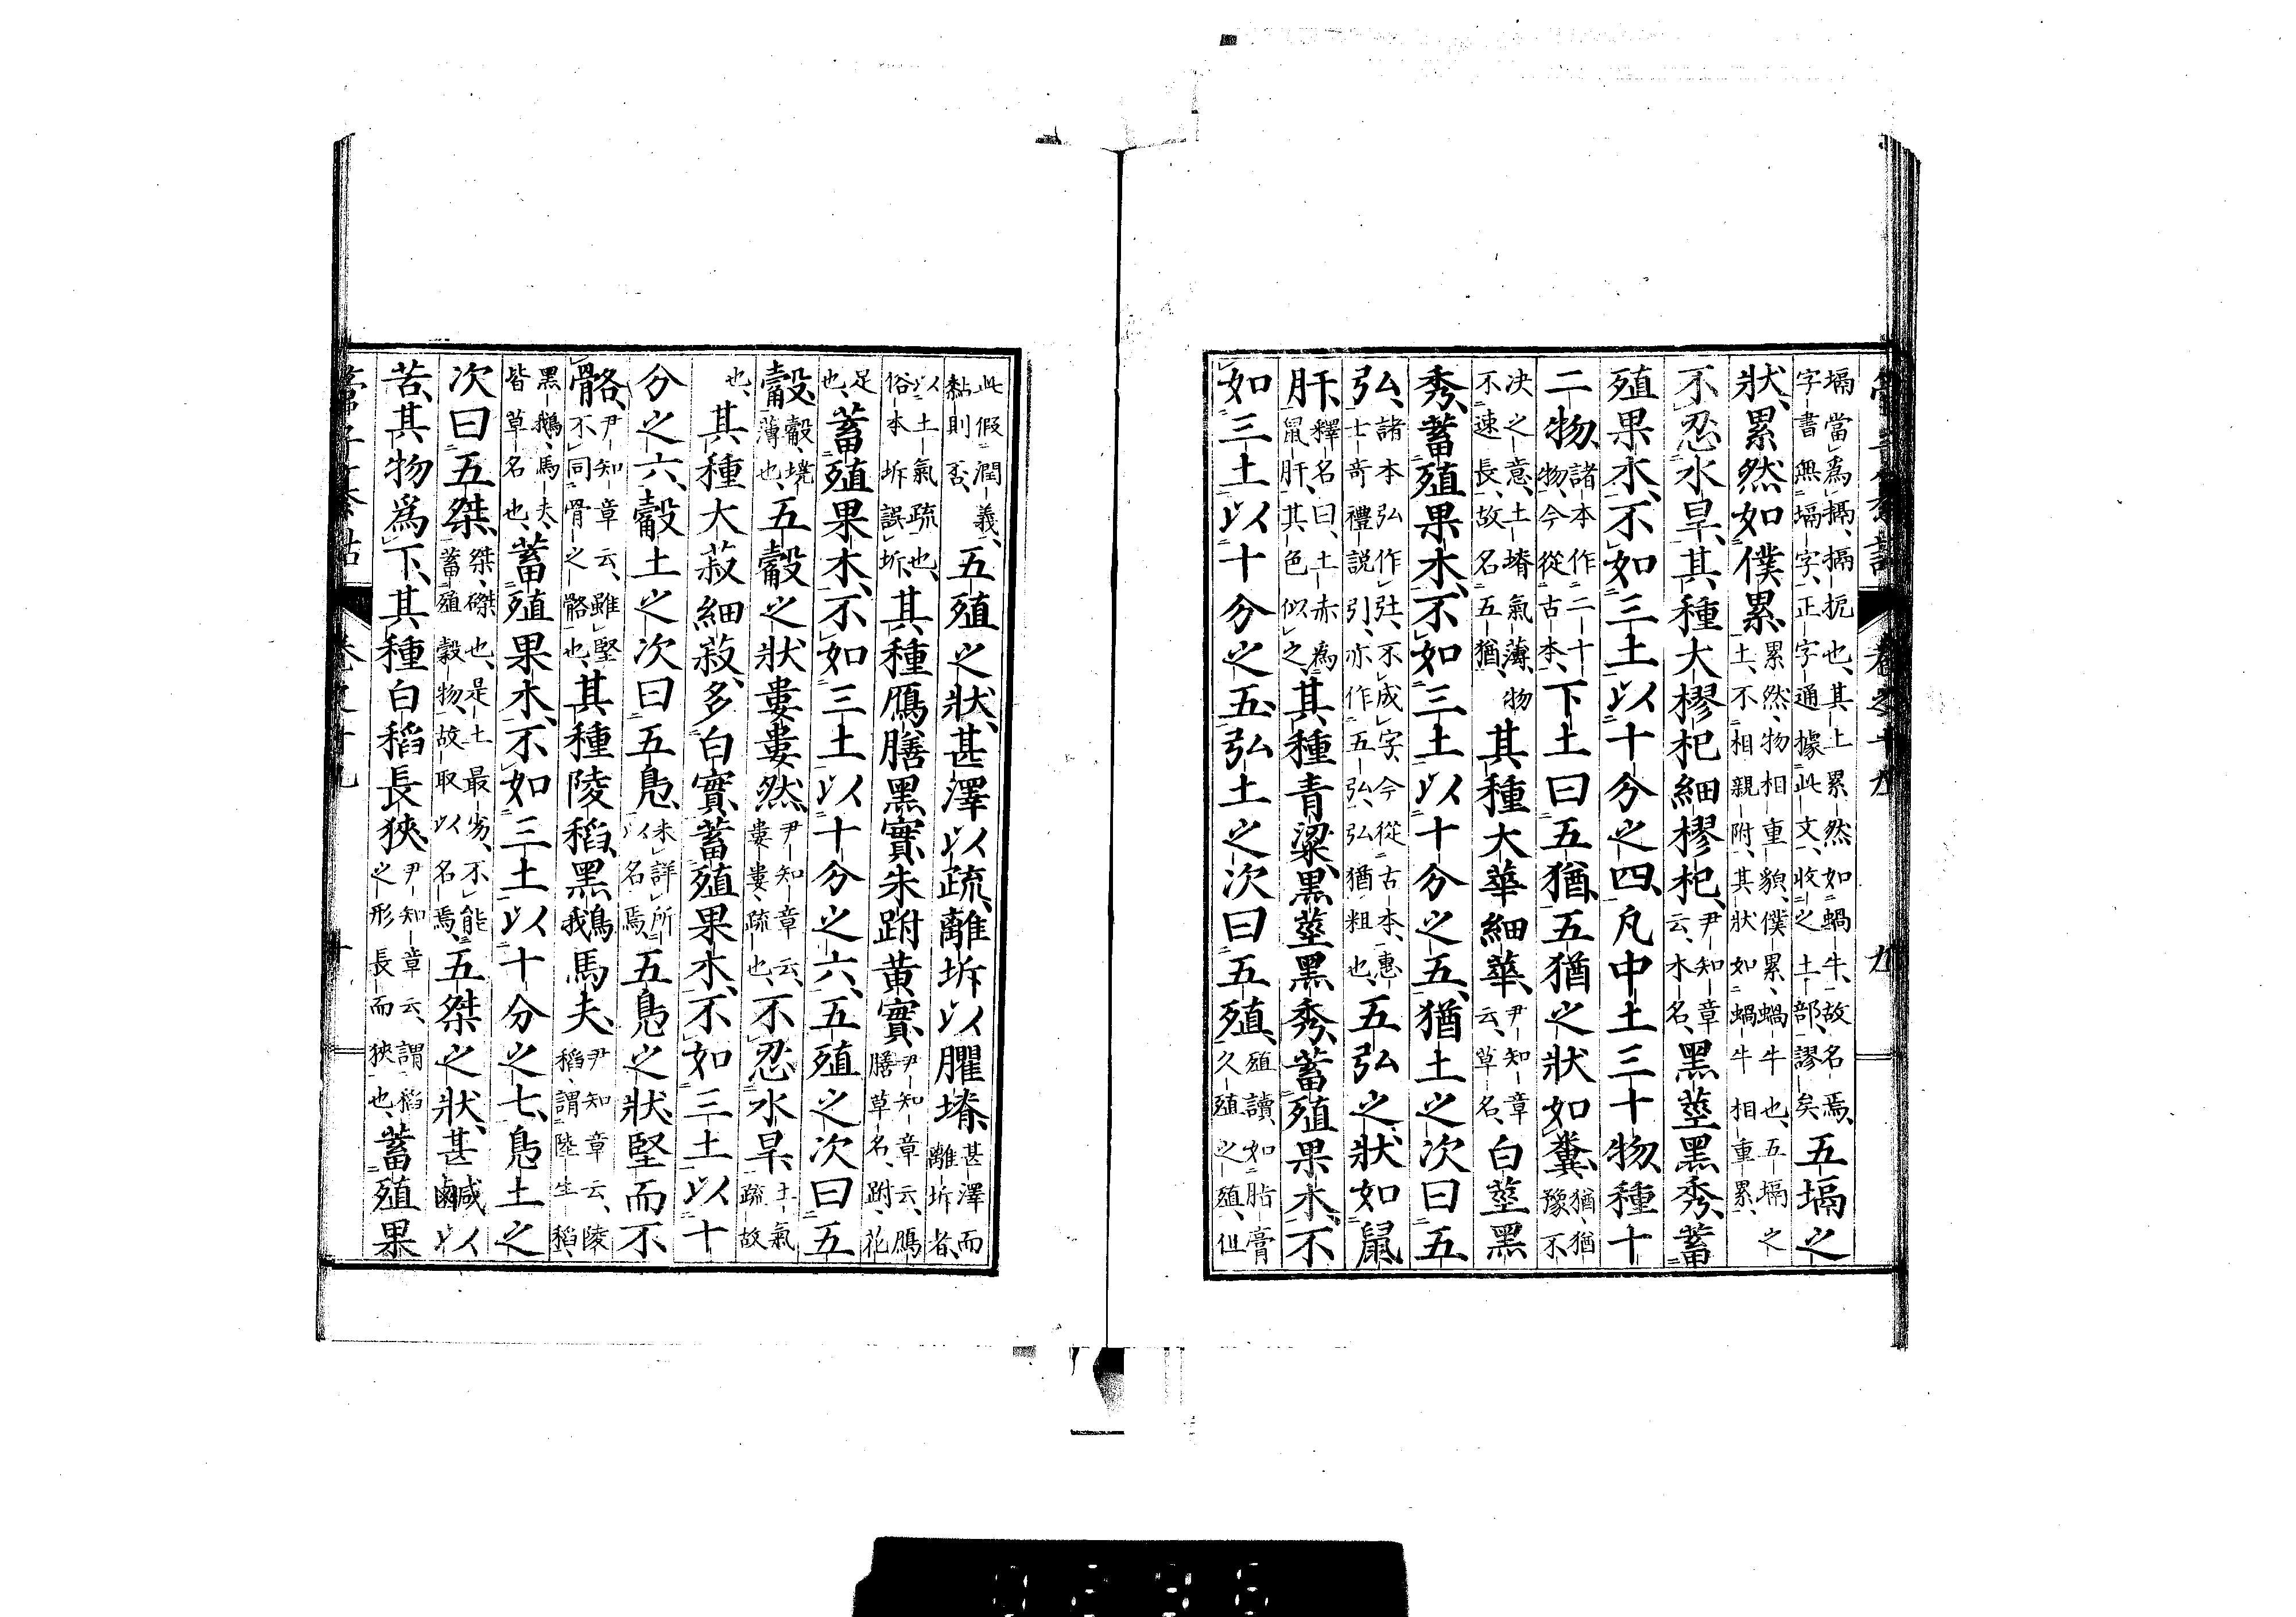 管子纂詁 卷之十九 九
塥當爲搹、搹扼也、其土累然如蝸牛、故名焉、字書無塥字、正字通據此文、收之土部、謬矣、五塥之
狀、累然如僕累、累然、物相重貌、僕累、蝸牛也、五塥之土、不相親附、其狀如蝸牛相重累、
不忍水旱、其種大樛杞細樛杞、尹知章云、木名、黑莖黑秀、蓄
殖果木、不如三土以十分之四、凡中土三十物、種十
二物、諸本作二十物、今從古本、下土曰五猶、五猶之狀如糞、猶猶豫不
決之意、土塉氣薄、物不速長、故名五猶、其種大華細華、尹知章云、草名、白莖黑
秀、蓄殖果木、不如三土以十分之五、猶土之次曰五
弘、諸本弘作、不成字、今從古本、惠士奇禮説引、亦作五弘、弘猶粗也、五弘之狀如鼠
肝、釋名曰、土赤爲鼠肝、其色似之、其種青粱、黑莖黑秀、蓄殖果木、不
如三土以十分之五、弘土之次曰五殖、殖讀如脂膏久殖之殖、但
此假潤義、黏則否、五殖之狀、甚澤以疏、離坼以臞塉、甚澤而離坼者、
以土氣疏也、俗本坼誤坘、其種鴈膳黑實、朱跗黃實、尹知章云、鴈膳草名、跗、花
足也、蓄殖果木、不如三土以十分之六、五殖之次曰五
觳、觳、墝薄也、五觳之狀婁婁然、尹知章云、婁婁、疏也、不忍水旱、土氣疏故
也、其種大菽細菽、多白實、蓄殖果木、不如三土以十
分之六、觳土之次曰五鳧、未詳所以名焉、五鳧之狀、堅而不
骼、尹知章云、雖堅不同骨之骼也、其種陵稻、黑鵝馬夫、尹知章云、陵稻、謂陸生稻、
黑鵝、馬夫、皆草名也、蓄殖果木、不如三土以十分之七、鳧土之
次曰五桀、桀、磔也、是土最劣、不能蓄殖穀物、故取以名焉、五桀之狀、甚鹹以
苦、其物爲下、其種白稻長狹、尹知章云、謂稻之形長而狹也、蓄殖果
管子纂詁 卷之十九 十